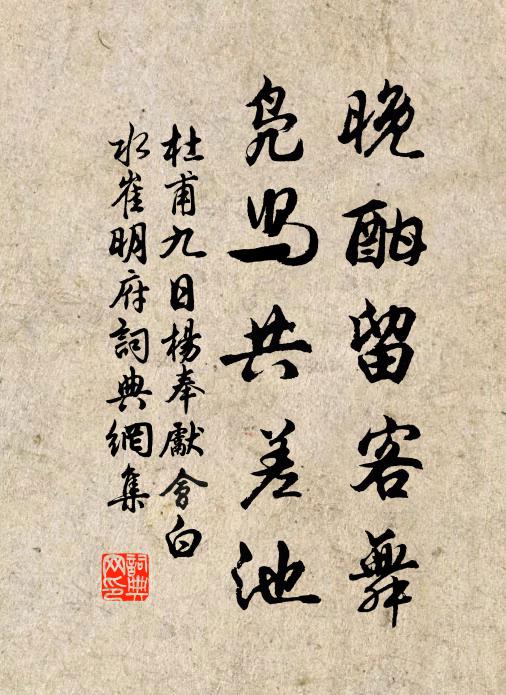 晚酣留客舞
鳧舄共差池
杜甫九日楊奉獻會白
水崔明府詞典網集
詞典
网印